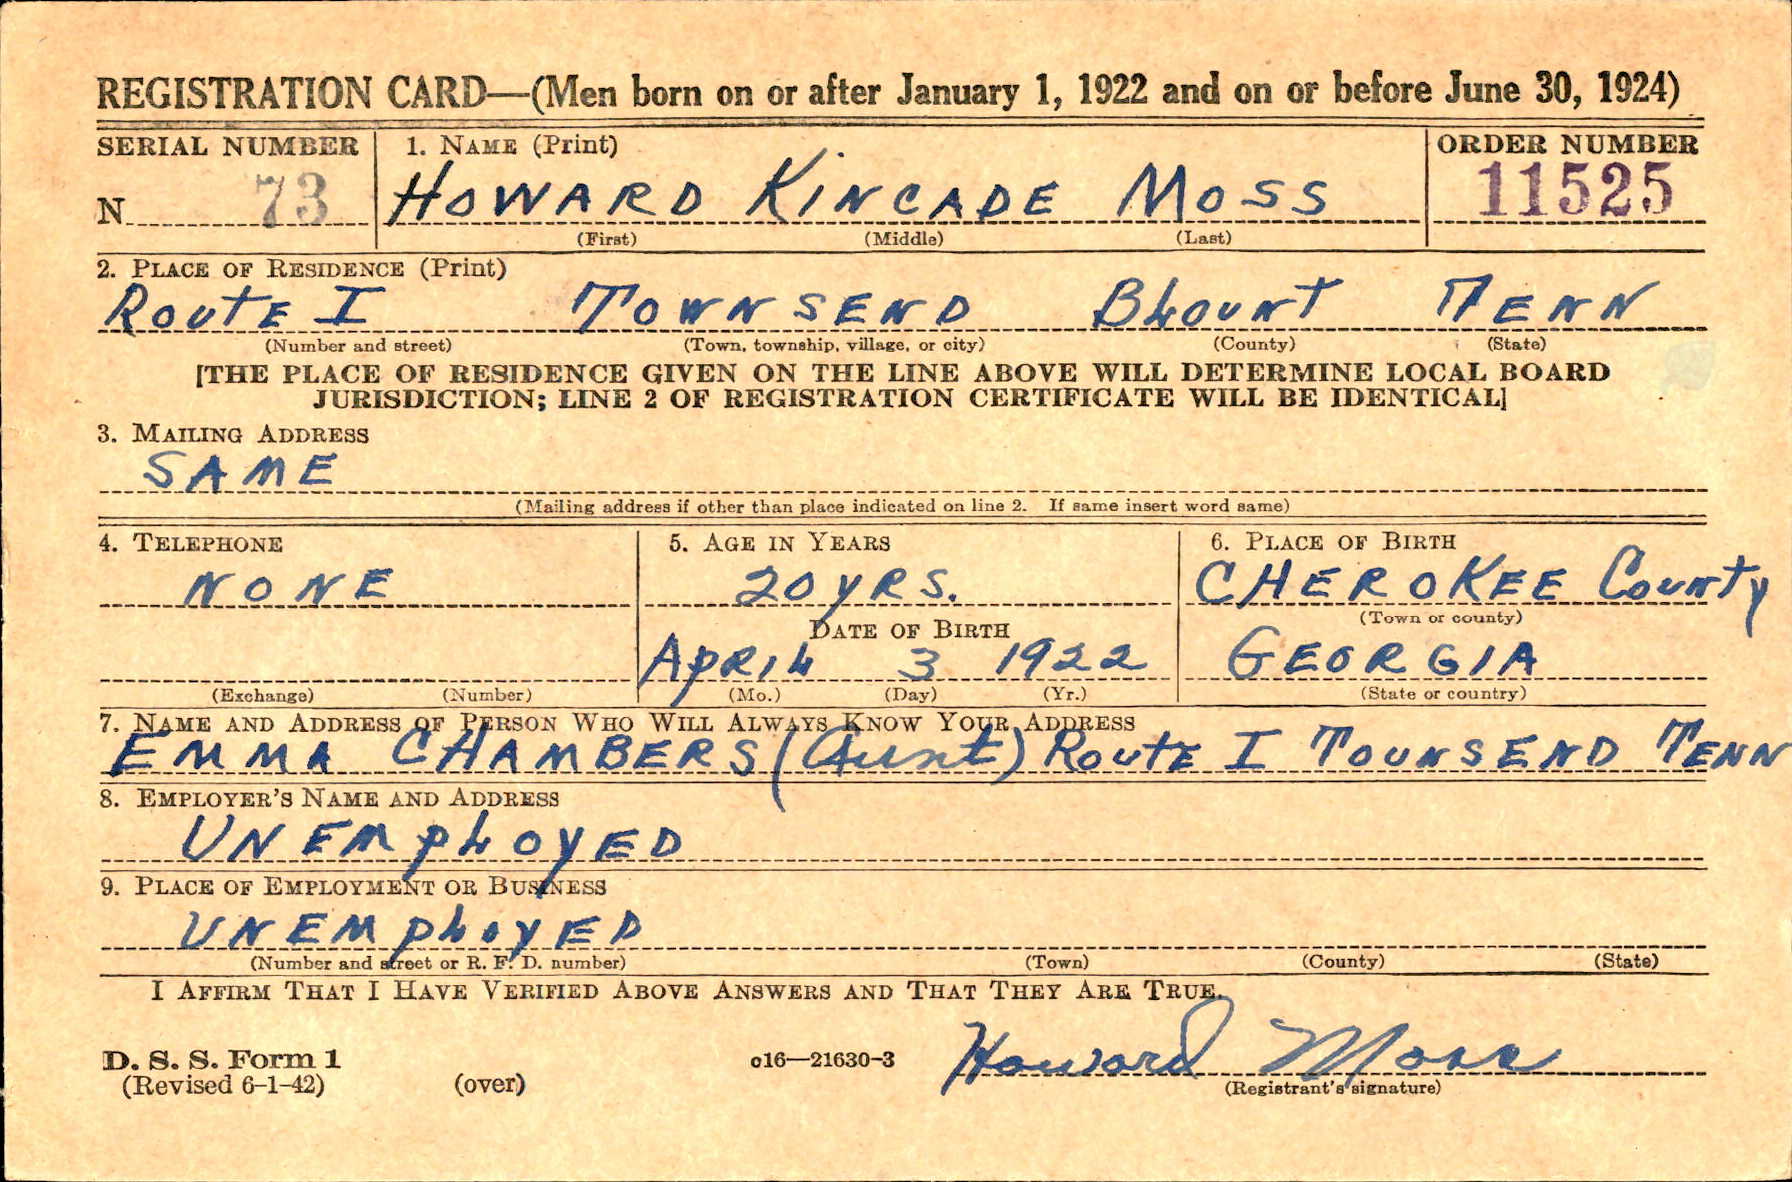 REGISTRATION CARD—(Men born on or after January 1, 1922 and on or before June 30, 1924)
SERIAL NUMBER 1. NAME (Print) ORDER NUMBER
N 73 HOWARD KINCADE MOSS 11525
(First) (Middle) (Last)
2. PLACE OF RESIDENCE (Print)
ROUTE I TOWNSEND BLOUNT TENN
(Number and street) (Town, township, village, or city) (County) (State)
[THE PLACE OF RESIDENCE GIVEN ON THE LINE ABOVE WILL DETERMINE LOCAL BOARD
JURISDICTION; LINE 2 OF REGISTRATION CERTIFICATE WILL BE IDENTICAL]
3. MAILING ADDRESS
SAME
(Mailing address if other than place indicated on line 2. If same insert word same)
4. TELEPHONE 5. AGE IN YEARS 6. PLACE OF BIRTH
NONE 20 YRS. CHEROKEE County
(Town or county)
DATE OF BIRTH
APRIL 3 1922 GEORGIA
(Exchange) (Number) (Mo.) (Day) (Yr.) (State or country)
7. NAME AND ADDRESS OF PERSON WHO WILL ALWAYS KNOW YOUR ADDRESS
EMMA CHAMBERS (Aunt) ROUTE I TOUNSEND TENN
8. EMPLOYER'S NAME AND ADDRESS
UNEMPLOYED
9. PLACE OF EMPLOYMENT OR BUSINESS
UNEMPLOYED
(Number and street or R. F. D. number) (Town) (County) (State)
I AFFIRM THAT I HAVE VERIFIED ABOVE ANSWERS AND THAT THEY ARE TRUE.
D. S. S. Form 1 c16—21630-3 Howard Moss
(Revised 6-1-42) (over) (Registrant's signature)